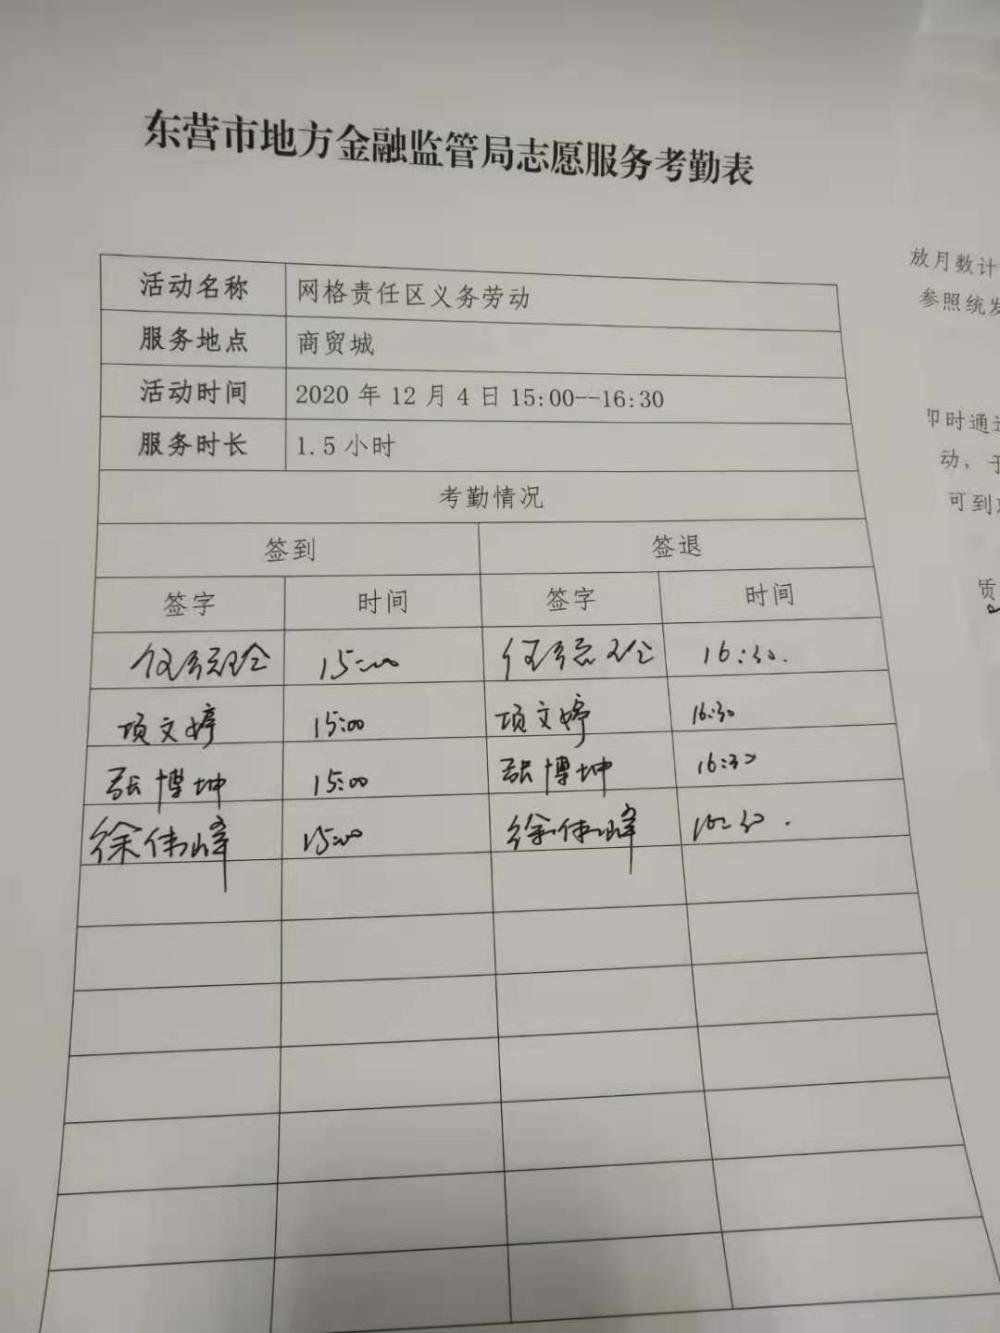 东营市地方金融监管局志愿服务考勤表
活动名称 网格责任区义务劳动
服务地点 商贸城
活动时间 2020 年 12 月 4 日 15:00--16:30
服务时长 1.5 小时
考勤情况
签到 签退
签字 时间 签字 时间
15:00 16:30.
项文婷 15:00 项文婷 16:30
张博坤 15:00 张博坤 16:30
徐伟峰 15:00 徐伟峰 16:30.
放月数计
参照统发
即时通
动，于
可到
质